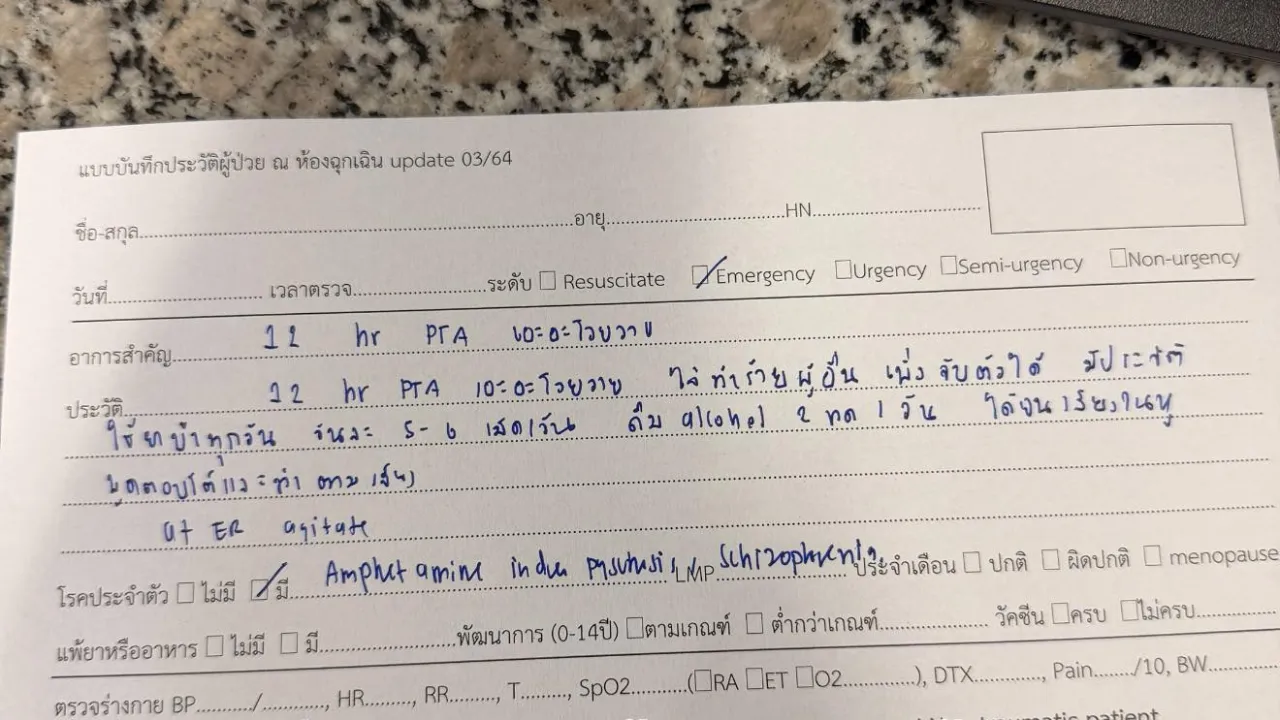 แบบบันทึกประวัติผู้ป่วย ณ ห้องฉุกเฉิน update 03/64
ชื่อ-สกุล..........อายุ..........HN..........
วันที่.......... เวลาตรวจ..........ระดับ ☐ Resuscitate ☑ Emergency ☐ Urgency ☐ Semi-urgency ☐ Non-urgency
อาการสำคัญ.......... 12 hr PTA เอะอะโวยวาย
ประวัติ.......... 12 hr PTA เอะอะโวยวาย ไล่ทำร้ายผู้อื่น เพิ่งจับตัวได้ มีประวัติ
ใช้ยาบ้าทุกวัน วันละ 5-6 เม็ด/วัน ดื่ม alcohol 2 1 วัน ได้ยินเสียงในหู
พูดตอบโต้และทำตามเสียง
at ER agitate
โรคประจำตัว ☐ ไม่มี ☑ มี Amphetamine induce LMP Schizophrenia ประจำเดือน ☐ ปกติ ☐ ผิดปกติ ☐ menopause
แพ้ยาหรืออาหาร ☐ ไม่มี ☐ มี..........พัฒนาการ (0-14ปี) ☐ ตามเกณฑ์ ☐ ต่ำกว่าเกณฑ์.......... วัคซีน ☐ ครบ ☐ ไม่ครบ..........
ตรวจร่างกาย BP........../.........., HR.........., RR.........., T.........., SpO2..........(☐RA ☐ET ☐O2..........), DTX.........., Pain......../10, BW..........
patient